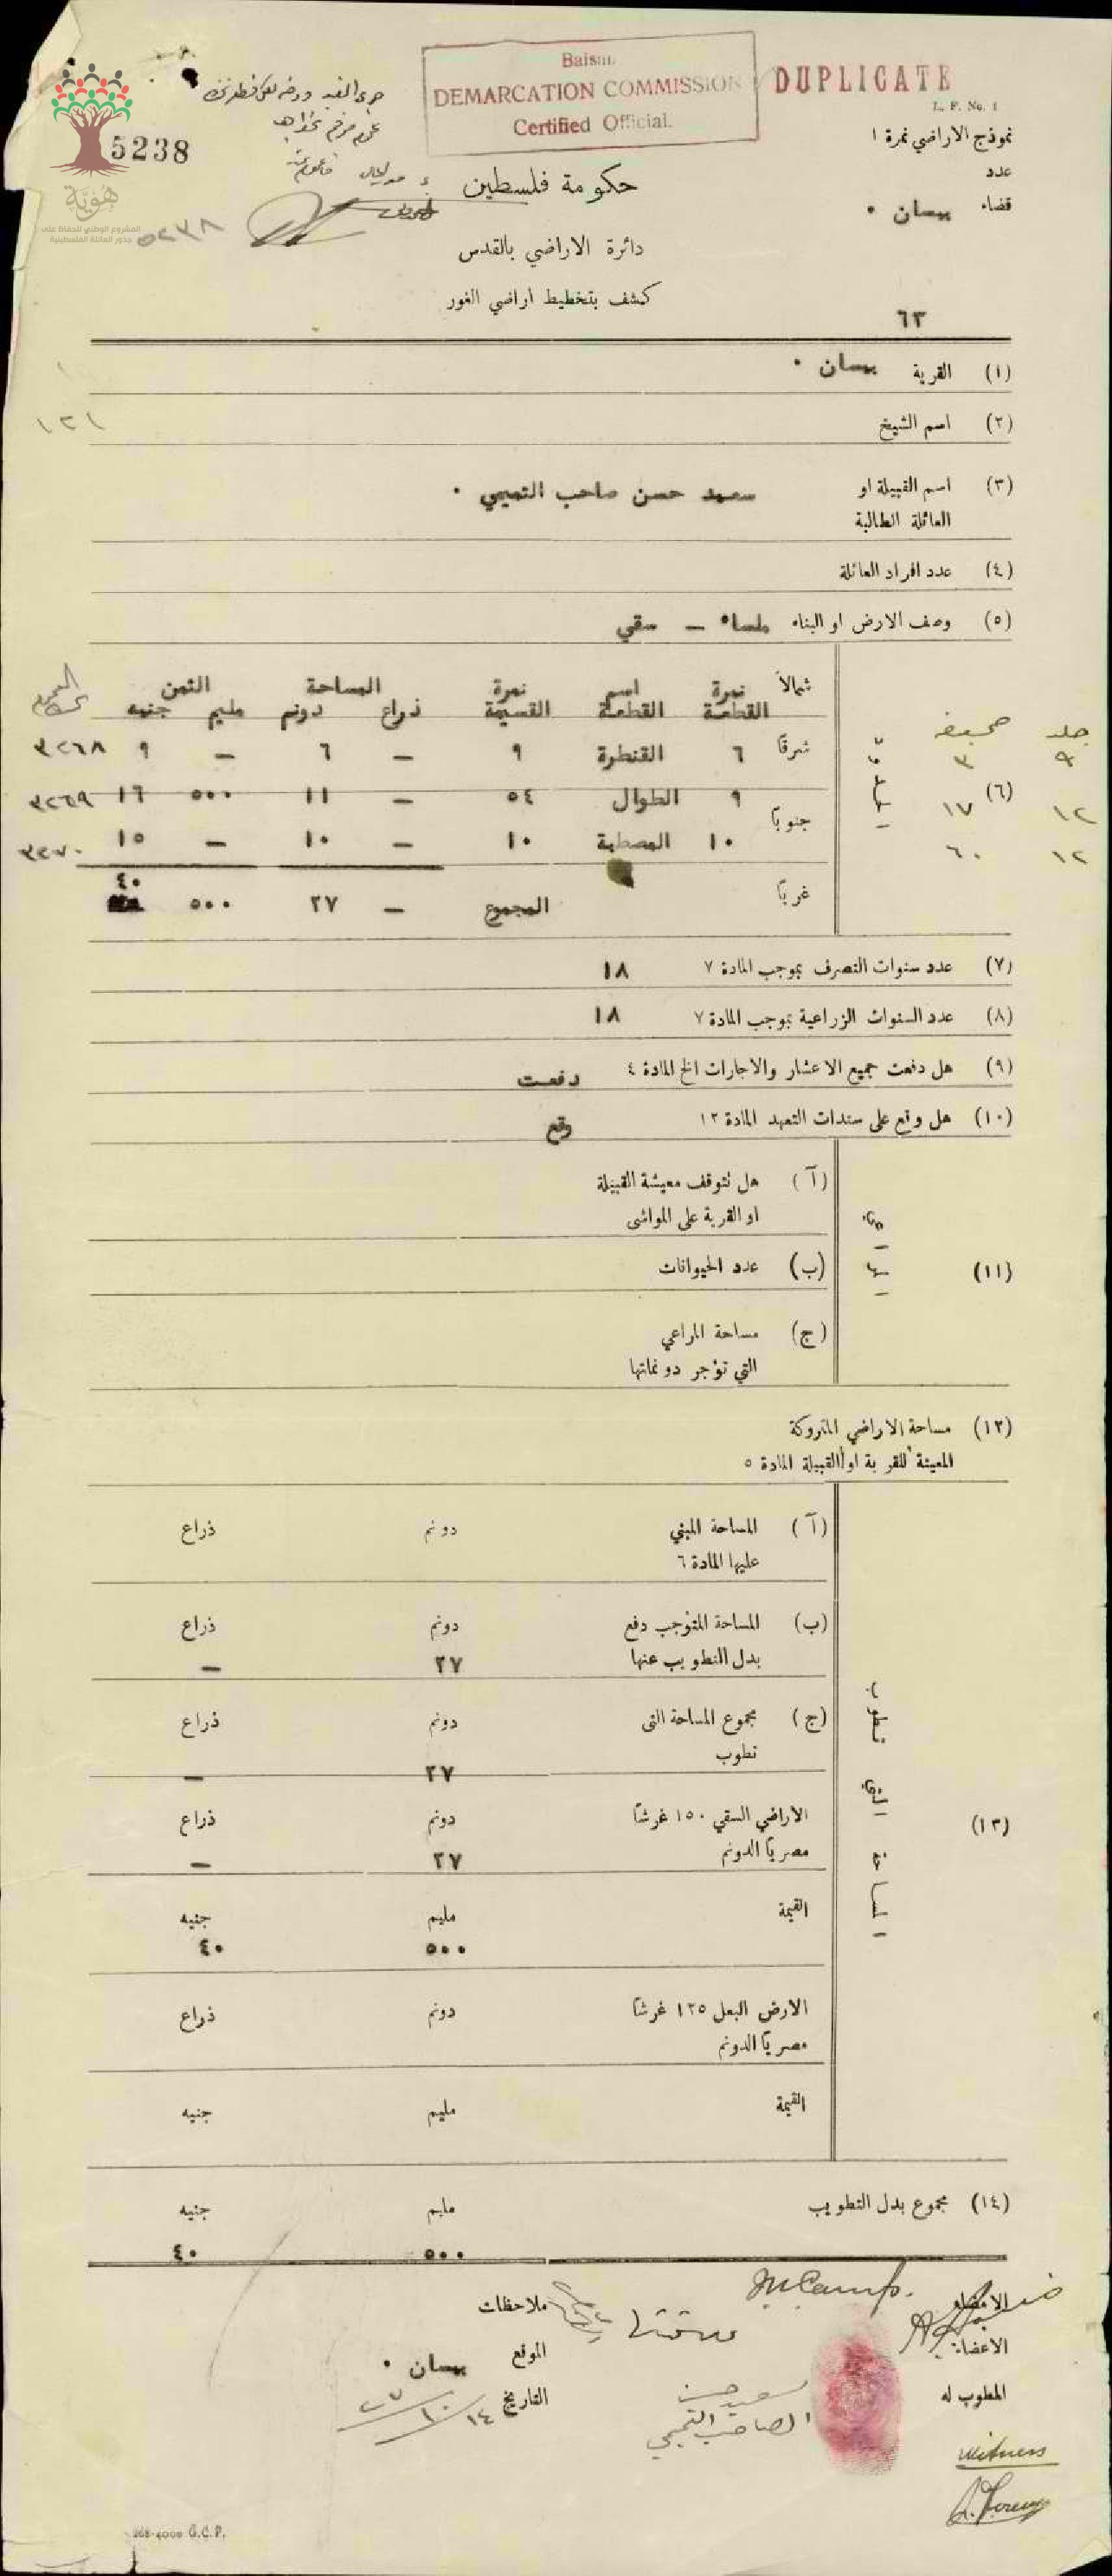 Baisan
DEMARCATION COMMISSION
Certified Official.
DUPLICATE
L. F. No. 1
نموذج الاراضي نمرة ١
عدد
قضاء بيسان ٠
٦٣
5238
٥٢٣٨
هُوِيَّة
المشروع الوطني للحفاظ على
جذور العائلة الفلسطينية
حكومة فلسطين
دائرة الاراضي بالقدس
كشف بتخطيط اراضي الغور
(١) القرية بيسان ٠
١٢١
(٢) اسم الشيخ
(٣) اسم القبيلة او العائلة الطالبة سعيد حسن صاحب التميمي ٠
(٤) عدد افراد العائلة
(٥) وصف الارض او البناء ملساء — سقي
(٦) الحدود
شمالاً نمرة القطعة اسم القطعة نمرة القسيمة المساحة ذراع دونم الثمن مليم جنيه
جلد صحيفة
٩ ٣ شرقاً ٦ القنطرة ٩ — ٦ — ٩ ٣٢٦٨
١٢ ١٧ جنوباً ٩ الطوال ٥٤ — ١١ ٥٠٠ ١٦ ٣٢٦٩
١٢ ٦٠ ١٠ المصطبة ١٠ — ١٠ — ١٥ ٣٢٧٠
غرباً المجموع — ٢٧ ٥٠٠ ٤٠
(٧) عدد سنوات التصرف بموجب المادة ٧ ١٨
(٨) عدد السنوات الزراعية بموجب المادة ٧ ١٨
(٩) هل دفعت جميع الاعشار والاجارات الخ المادة ٤ دفعت
(١٠) هل وقع على سندات التعهد المادة ١٢ وقع
(١١)
(آ) هل تتوقف معيشة القبيلة
او القرية على المواشي
(ب) عدد الحيوانات
(ج) مساحة المراعي
التي تؤجر دونماتها
(١٢) مساحة الاراضي المتروكة
المعينة للقرية او القبيلة المادة ٥
(١٣) المساحة التي تطوب
(آ) المساحة المبني دونم ذراع
عليها المادة ٦
(ب) المساحة المتوجب دفع دونم ذراع
بدل التطويب عنها ٢٧ —
(ج) مجموع المساحة التي دونم ذراع
تطوب ٢٧ —
الاراضي السقي ١٥٠ غرشاً دونم ذراع
مصرياً الدونم ٢٧ —
القيمة مليم جنيه
٥٠٠ ٤٠
الارض البعل ١٢٥ غرشاً دونم ذراع
مصرياً الدونم
القيمة مليم جنيه
(١٤) مجموع بدل التطويب مليم جنيه
٥٠٠ ٤٠
الامضاء
الاعضاء
المطوب له
سعيد حسن
الصاحب التميمي
ملاحظات
الموقع بيسان ٠
التاريخ ١٤/١٠/٢٧
witness
268-4000 G.C.P.